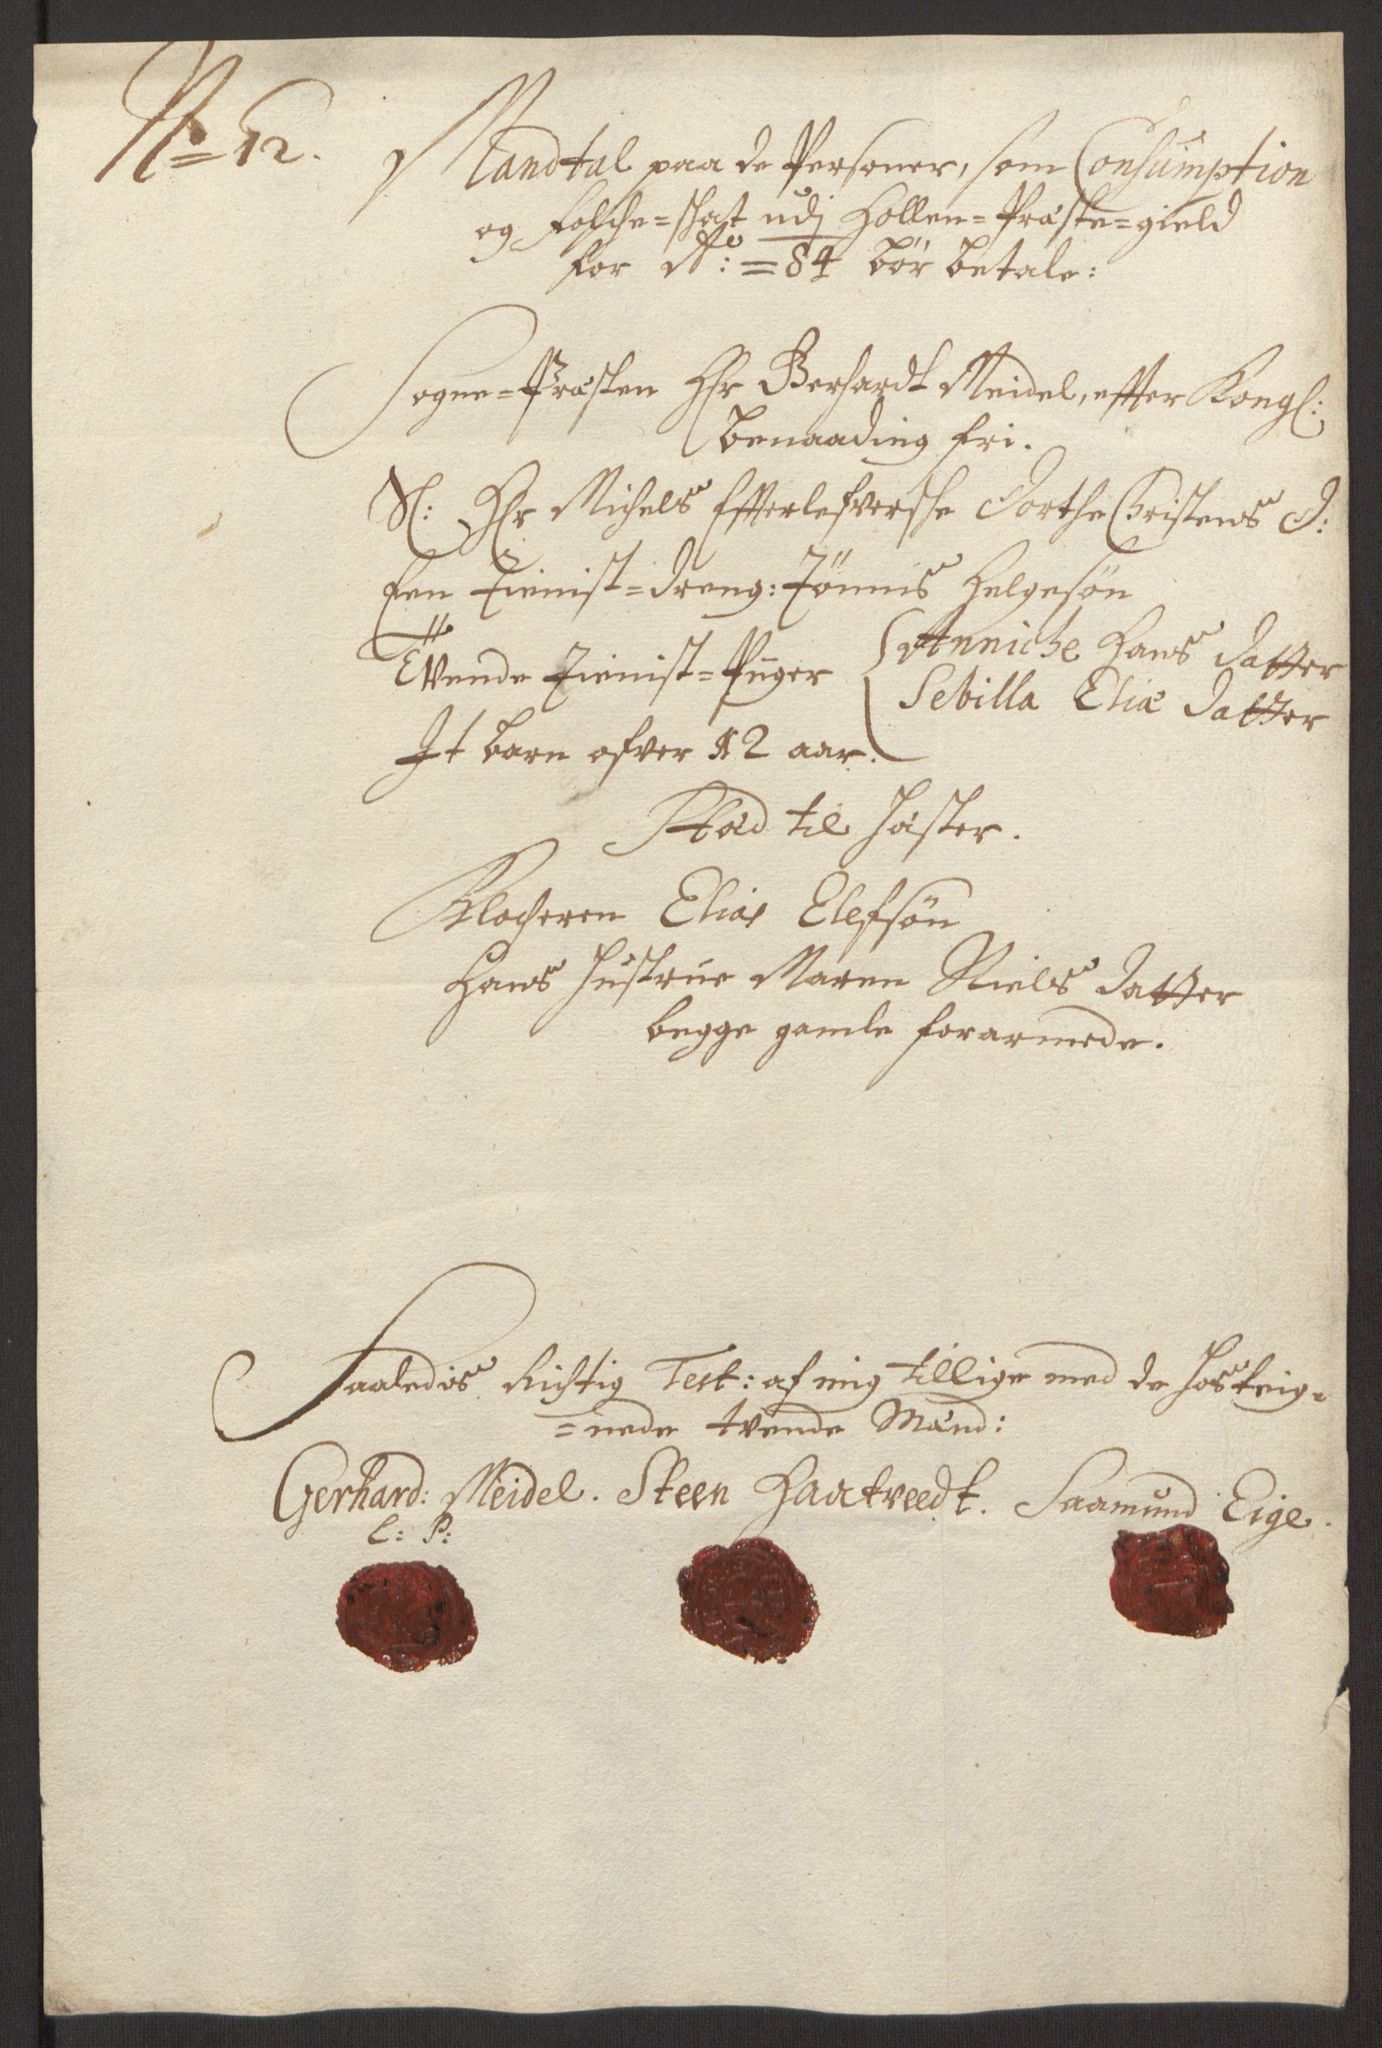 No = 12.
Mandtal paa de Personer, som Consumption
og Folche=schat udj Hollen=Præste=gield
for Ao: = 84 bør betale:
Sogne=Præsten Hr Gerhardt Meidel, effter Kongl:
benaading fri.
Sl: Hr Michels Effterlefversche Dorthe Christens D:
Een Tienist=dreng: Tönnis Helgesøn
Tvende Tienist=Piiger
Anniche Hans datter
Sebilla Eliæ datter
It barn ofver 12 aar.
Stæd til Hæster.
Klocheren Elias Elefsøn
Hans Hustrue Maren Niels datter
begge gamle forarmede.
Saaledis Richtig Test: af mig tillige med de hosteig=
=nede tvende Mænd:
Gerhard: Meidel. Steen Haatvedt. Saamund Eige.
L: S: